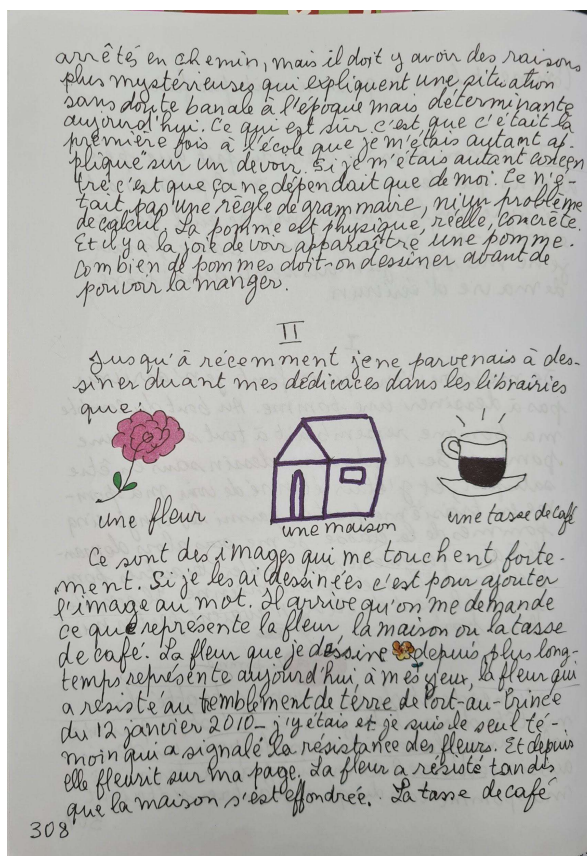 arrêtés en chemin, mais il doit y avoir des raisons
plus mystérieuses qui expliquent une situation
sans doute banale à l'époque mais déterminante
aujourd'hui. Ce qui est sûr c'est que c'était la
première fois à l'école que je m'étais autant ap-
pliqué sur un devoir. Si je m'étais autant concen
tré c'est que ça ne dépendait que de moi. Ce n'é-
tait pas une règle de grammaire, ni un problème
de calcul. La pomme est physique, réelle, concrète.
Et il y a la joie de voir apparaître une pomme.
Combien de pommes doit-on dessiner avant de
pouvoir la manger.
II
Jusqu'à récemment je ne parvenais à des-
siner durant mes dédicaces dans les librairies
que:
une fleur
une maison
une tasse de café
Ce sont des images qui me touchent forte-
ment. Si je les ai dessinées c'est pour ajouter
l'image au mot. Il arrive qu'on me demande
ce que représente la fleur, la maison ou la tasse
de café. La fleur que je dessine depuis plus long-
temps représente aujourd'hui, à mes yeux, la fleur qui
a résisté au tremblement de terre de Port-au-Prince
du 12 janvier 2010 – j'y étais et je suis le seul té-
moin qui a signalé la résistance des fleurs. Et depuis
elle fleurit sur ma page. La fleur a résisté tandis
que la maison s'est effondrée. La tasse de café
308